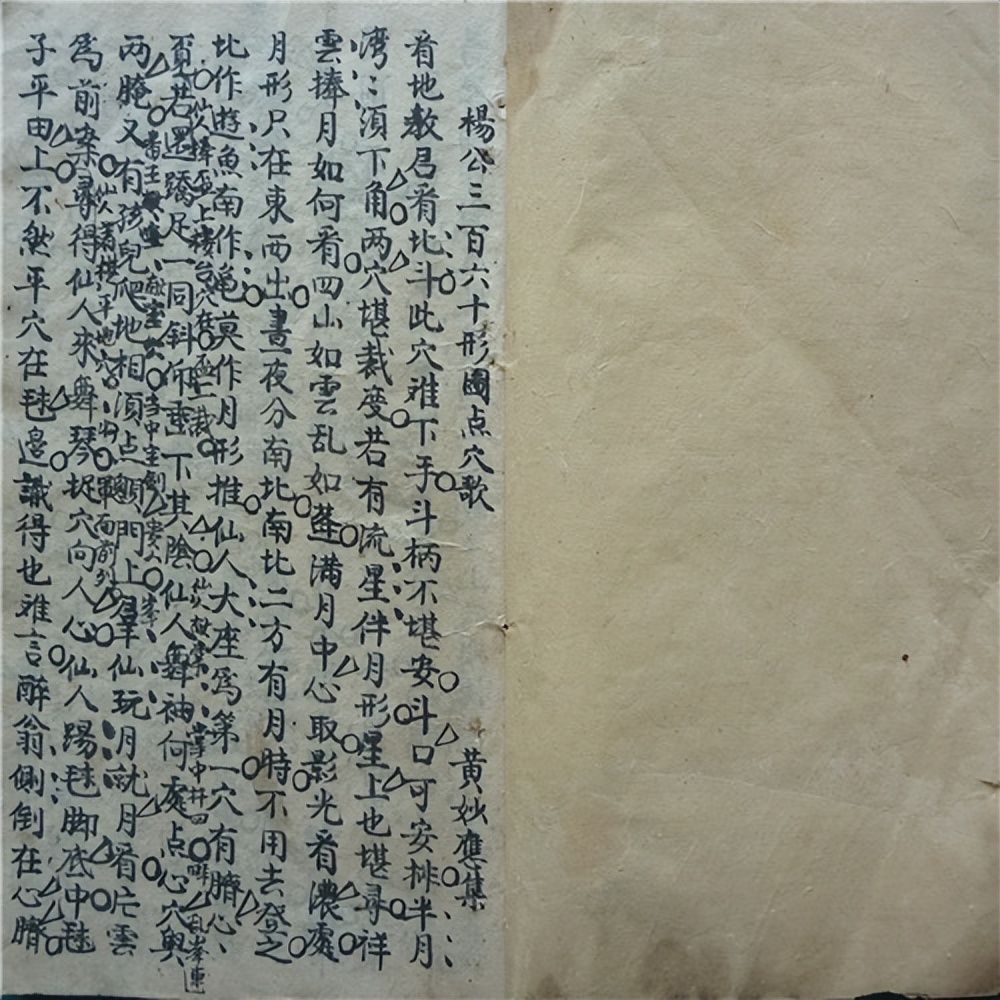 楊公三百六十形圖点穴歌 黄妙應集
看地教君看北斗此穴难下手斗柄不堪安斗口可安排半月
湾〻須下角两穴堪裁度若有流星伴月形星上也堪尋祥
雲捧月如何看四山如雲乱如蓬滿月中心取影光看濃處
月形只在東西出晝夜分南北南北二方有月時不用去登之
北作遊魚南作龟莫作月形推仙人大座爲第一穴有臍心
仙人捧盃上楼台穴在盃
若還蹻足一同斜仰垂下其陰仙人舞袖何處点心穴與
两腌又有孩兒爬地相須点顖門上羣仙玩月就月看庀雲
爲前案尋得仙人來舞琴捉穴向人心仙人踢毬脚底中毬
子平田上不然平穴在毬邉識得也难言醉翁側倒在心臍